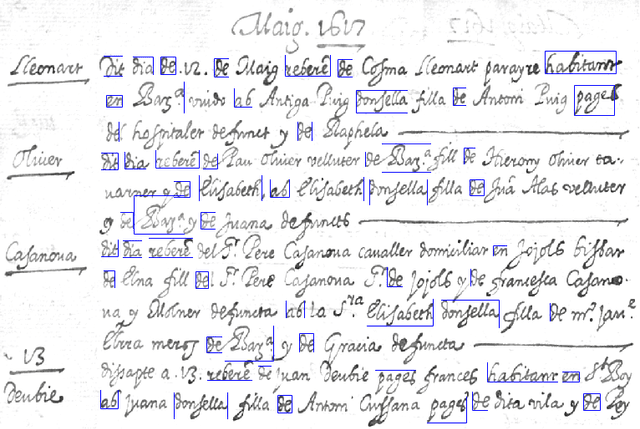 Maig. 1617
Lleonart dit dia de .12. de Maig reberē de Cosma Lleonart parayre habitant
en Barᵃ viudo ab Antiga Puig donsella filla de Antoni Puig pages
del hospitalet defunct y de Raphela
Oliver dit dia reberē de Pau Oliver velluter de Barᵃ fill de Hierony Oliver ta-
varner y de Elisabeth, ab Elisabeth donsella filla de Juā Alas velluter
q̄ de Barᵃ y de Juana defuncts
Casanova dit dia reberē del Sʳ. Pere Casanova cavaller domiciliat en Jojols bisbat
de Elna fill del Sʳ. Pere Casanova Sʳ. de Jojols y de francesca Casano-
va y Molner defuncta ab la Sʳᵃ Elisabeth donsella filla de mʳ. Jauᵉ
merᵉ de Barᵃ y de Gracia defuncta
13
Deubie dissapte a 13. reberē de Juan Deubie pages frances habitant en Sᵗ Boy
ab Juana donsella filla de Antoni Cussana pages de dita vila y de Pey